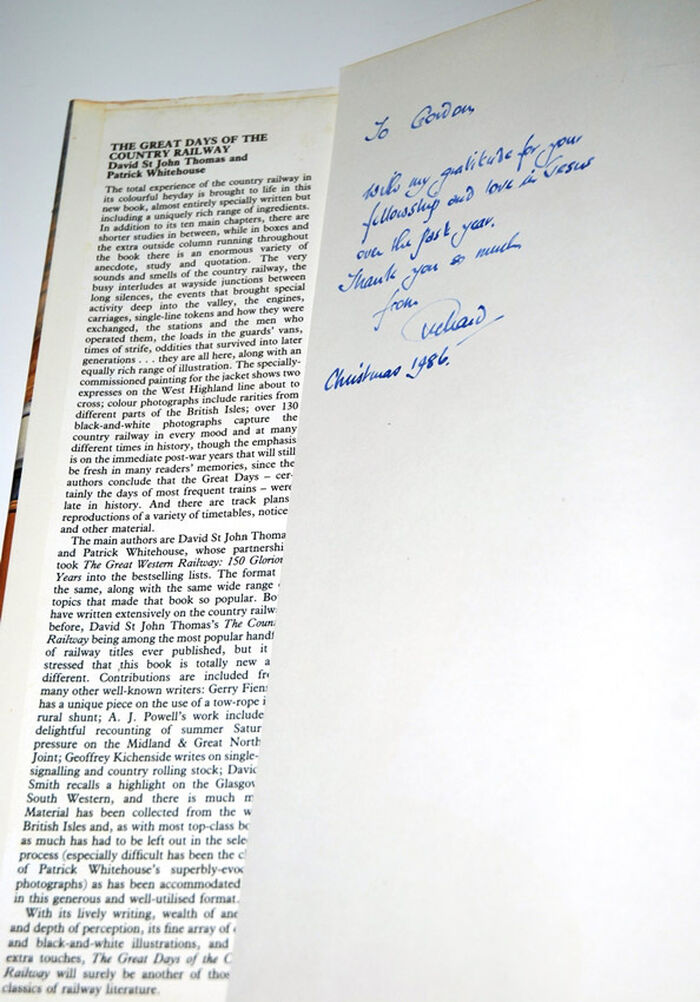 THE GREAT DAYS OF THE
COUNTRY RAILWAY
David St John Thomas and
Patrick Whitehouse
The total experience of the country railway in
its colourful heyday is brought to life in this
new book, almost entirely specially written but
including a uniquely rich range of ingredients.
In addition to its ten main chapters, there are
shorter studies in between, while in boxes and
the extra outside column running throughout
the book there is an enormous variety of
anecdote, study and quotation. The very
sounds and smells of the country railway, the
busy interludes at wayside junctions between
long silences, the events that brought special
activity deep into the valley, the engines,
carriages, single-line tokens and how they were
exchanged, the stations and the men who
operated them, the loads in the guards' vans,
times of strife, oddities that survived into later
generations . . . they are all here, along with an
equally rich range of illustration. The specially-
commissioned painting for the jacket shows two
expresses on the West Highland line about to
cross; colour photographs include rarities from
different parts of the British Isles; over 130
black-and-white photographs capture the
country railway in every mood and at many
different times in history, though the emphasis
is on the immediate post-war years that will still
be fresh in many readers' memories, since the
authors conclude that the Great Days – cer-
tainly the days of most frequent trains – were
late in history. And there are track plans
reproductions of a variety of timetables, notice
and other material.
The main authors are David St John Thoma
and Patrick Whitehouse, whose partnershi
took The Great Western Railway: 150 Glorio
Years into the bestselling lists. The format
the same, along with the same wide range
topics that made that book so popular. Bo
have written extensively on the country railw
before, David St John Thomas's The Coun
Railway being among the most popular hand
of railway titles ever published, but it
stressed that this book is totally new a
different. Contributions are included fr
many other well-known writers: Gerry Fien
has a unique piece on the use of a tow-rope i
rural shunt; A. J. Powell's work include
delightful recounting of summer Satur
pressure on the Midland & Great North
Joint; Geoffrey Kichenside writes on single-
signalling and country rolling stock; David
Smith recalls a highlight on the Glasgow
South Western, and there is much m
Material has been collected from the w
British Isles and, as with most top-class bo
as much has had to be left out in the sele
process (especially difficult has been the c
of Patrick Whitehouse's superbly-evoc
photographs) as has been accommodated
in this generous and well-utilised format.
With its lively writing, wealth of ane
and depth of perception, its fine array of
and black-and-white illustrations, and
extra touches, The Great Days of the C
Railway will surely be another of thos
classics of railway literature.
To Gordon
With my gratitude for your
fellowship and love in Jesus
over the past year.
Thank you so much
from
Richard
Christmas 1986.